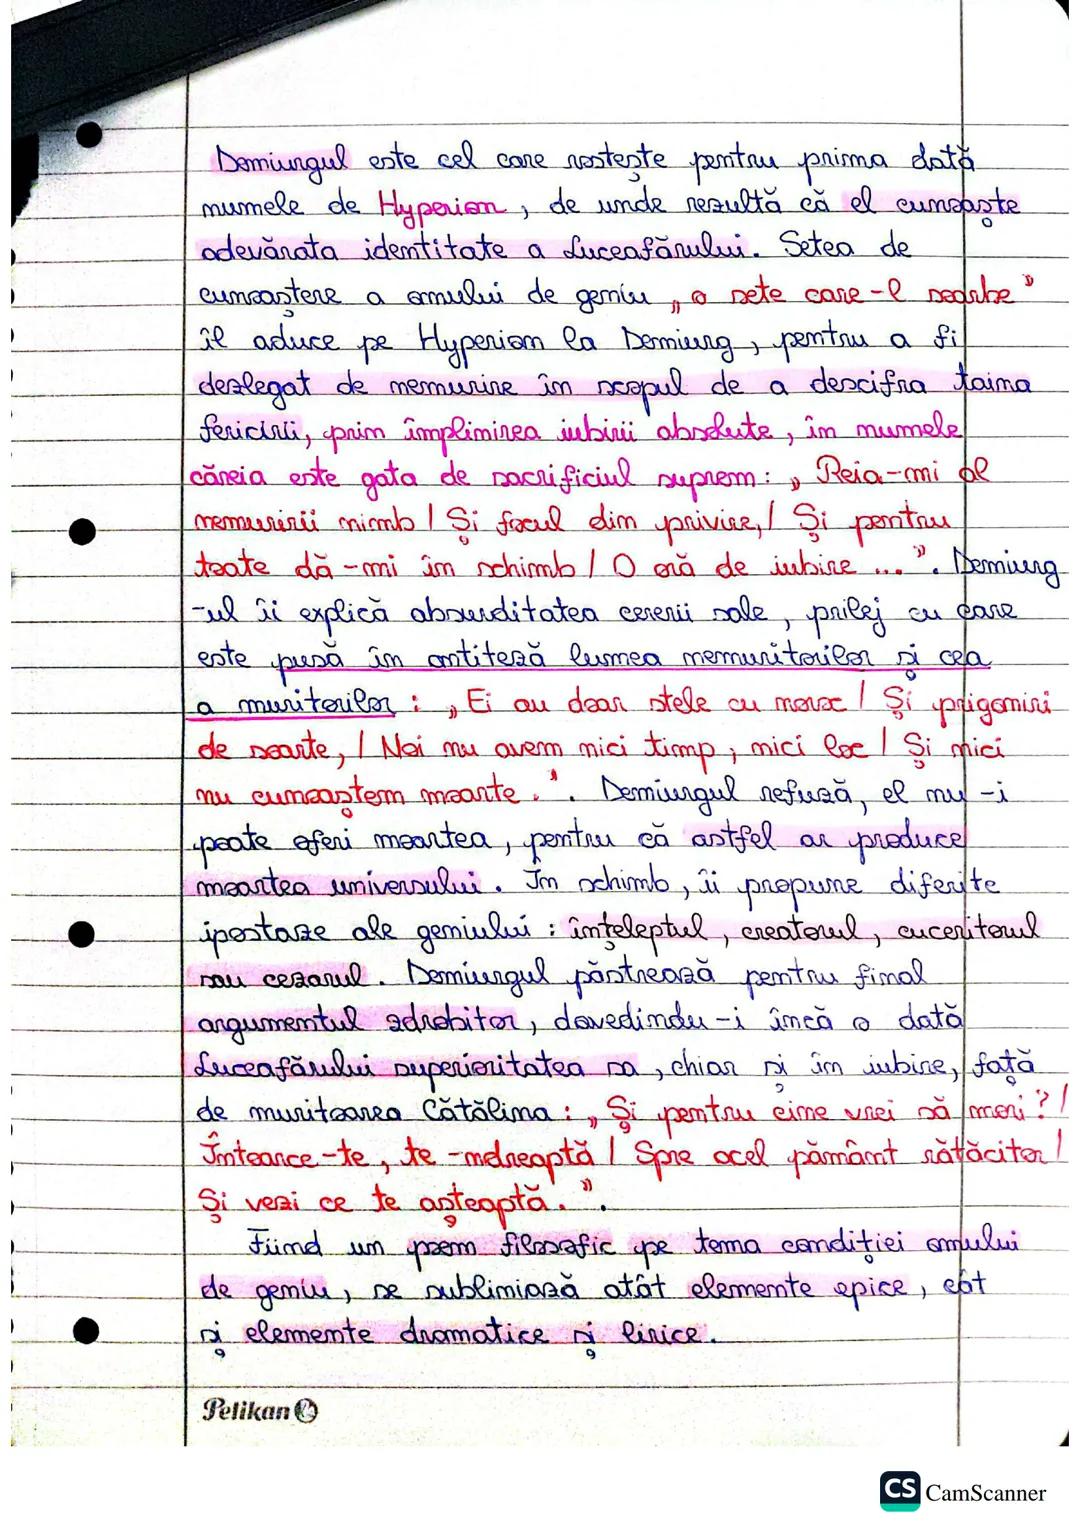 Demiurgul este cel care rostește pentru prima dată
numele de Hyperion, de unde rezultă că el cunoaște
adevărata identitate a Luceafărului. Setea de
cunoaștere a omului de geniu „o sete care-l soarbe"
îl aduce pe Hyperion la Demiurg, pentru a fi
dezlegat de nemurire în scopul de a descifra taina
fericirii, prin împlinirea iubirii absolute, în numele
căreia este gata de sacrificiul suprem: „Reia-mi al
nemuririi nimb / Și focul din privire, / Și pentru
toate dă-mi în schimb / O oră de iubire ...". Demiurg
-ul îi explică absurditatea cererii sale, prilej cu care
este pusă în antiteză lumea nemuritorilor și cea
a muritorilor: „Ei au doar stele cu noroc / Și prigoniri
de soarte, / Noi nu avem nici timp, nici loc / Și nici
nu cunoaștem moarte.". Demiurgul refuză, el nu-i
poate oferi moartea, pentru că astfel ar produce
moartea universului. În schimb, îi propune diferite
ipostaze ale geniului: înțeleptul, creatorul, cuceritorul
sau cezarul. Demiurgul păstrează pentru final
argumentul zdrobitor, dovedindu-i încă o dată
Luceafărului superioritatea sa, chiar și în iubire, față
de muritoarea Cătălina: „Și pentru cine vrei să mori? /
Întoarce-te, te-ndreaptă / Spre acel pământ rătăcitor /
Și vezi ce te așteaptă.".
Fiind un poem filosofic pe tema condiției omului
de geniu, se sublimiază atât elemente epice, cât
și elemente dramatice și lirice.
Pelikan
CS CamScanner